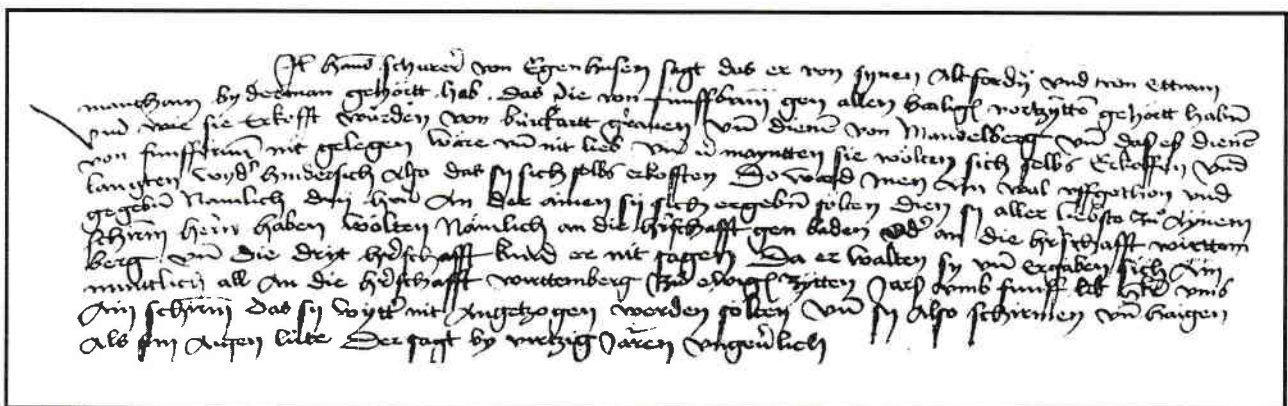 Jt Hans schurer von Egenhusen sagt das er von synen Altfordn vnd von ettwan
manchem byderman gehörtt hab das die von funffbrun gen allen hailign vortzytten gehörtt habn
vnd wie sie Erkofft würden von burkartt vnd dienen von Mandelberg vnd das es dienen
von funffbrun nit gelegen wäre vnd nit lieb vnd maynten sie wölten sich selbs Erkoffen vnd
langten hindersich Also das sy sich selbs erkofften Do ward inen ain wal vffgetthon vnd
gegebn Namlich dry hrn An der ainen sy sich ergebn sölten dien sy aller liebsto zu Aynem
schirm hern haben wölten Nämlich an die hrschafft gen baden odr an die hrschafft wirttem
berg vnd die dryt hrschafft kund er nit sagen Da er walten sy vnd Ergaben sich Ain
muttlich all An die hrschafft wurttemberg zu ewign zytten Jars vmb funff lib hlr vmb
Ain schirm das sy wyttr nit Angetzogen werden sölten vnd sy Also schirmen vnd haigen
Als sin Aigen lüte Der sagt by viertzig Jären vngeuerlich